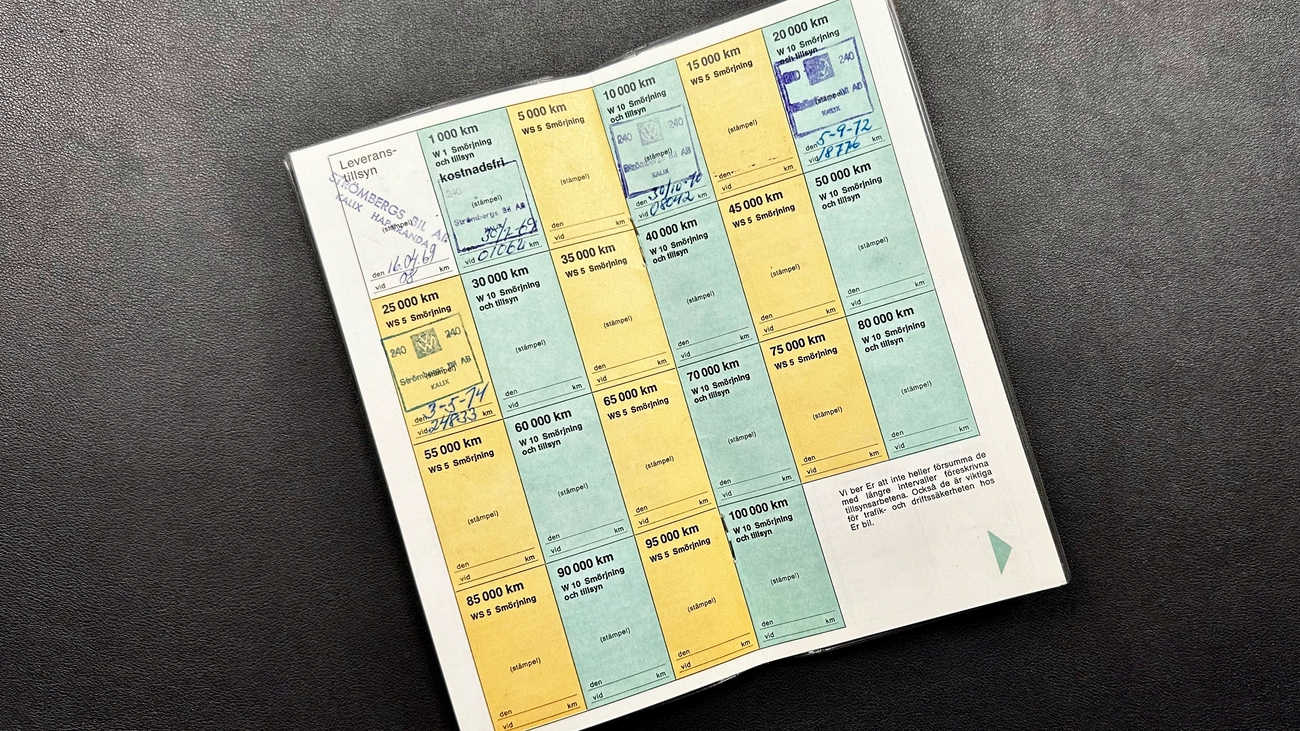 Leverans-
tillsyn
STRÖMBERGS BIL AB
KALIX HAPARANDA
(stämpel)
den 16.04.69
vid 08 km
1 000 km
W 1 Smörjning
och tillsyn
kostnadsfri
240
(stämpel)
Strömbergs Bil AB
den
vid 01064 km
5 000 km
WS 5 Smörjning
(stämpel)
den
vid km
10 000 km
W 10 Smörjning
och tillsyn
240 240
(stämpel)
AB
KALIX
den 30/10-70
vid 08042 km
15 000 km
WS 5 Smörjning
(stämpel)
den
vid km
20 000 km
W 10 Smörjning
och tillsyn
240 240
(stämpel)
AB
KALIX
den 5-9-72
vid 18776
25 000 km
WS 5 Smörjning
240 240
Strömbergs Bil AB
(stämpel)
KALIX
den 3-5-74
vid 24833 km
30 000 km
W 10 Smörjning
och tillsyn
(stämpel)
den
vid km
35 000 km
WS 5 Smörjning
(stämpel)
den
vid km
40 000 km
W 10 Smörjning
och tillsyn
(stämpel)
den
vid km
45 000 km
WS 5 Smörjning
(stämpel)
den
vid km
50 000 km
W 10 Smörjning
och tillsyn
(stämpel)
den
vid km
55 000 km
WS 5 Smörjning
(stämpel)
den
vid km
60 000 km
W 10 Smörjning
och tillsyn
(stämpel)
den
vid km
65 000 km
WS 5 Smörjning
(stämpel)
den
vid km
70 000 km
W 10 Smörjning
och tillsyn
(stämpel)
den
vid km
75 000 km
WS 5 Smörjning
(stämpel)
den
vid km
80 000 km
W 10 Smörjning
och tillsyn
(stämpel)
den
vid km
85 000 km
WS 5 Smörjning
(stämpel)
den
vid km
90 000 km
W 10 Smörjning
och tillsyn
(stämpel)
den
vid km
95 000 km
WS 5 Smörjning
(stämpel)
den
vid km
100 000 km
W 10 Smörjning
och tillsyn
(stämpel)
den
vid km
Vi ber Er att inte heller försumma de
med längre intervaller föreskrivna
tillsynsarbetena. Också de är viktiga
för trafik- och driftssäkerheten hos
Er bil.